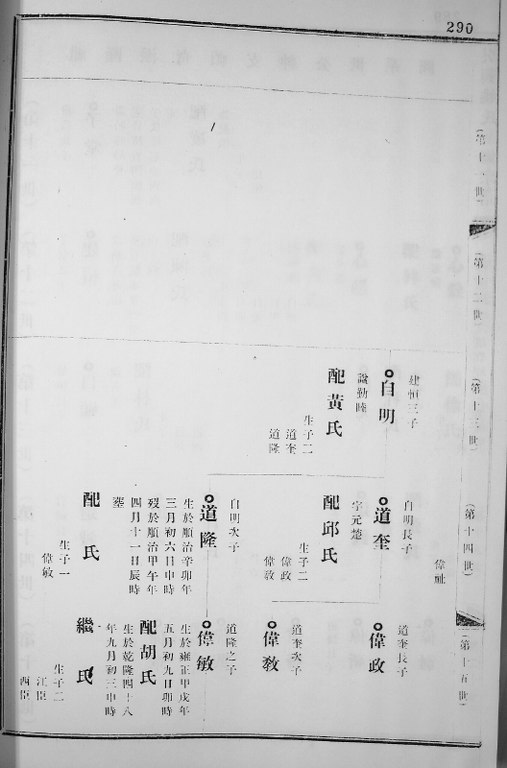 290
(第十一世)
(第十二世)
(第十三世)
建恒三子
自明
諡勤睦
配黃氏
生子二
道奎
道隆
(第十四世)
偉祉
自明長子
道奎
字元楚
配邱氏
生子二
偉政
偉教
自明次子
道隆
生於順治辛卯年
三月初六日申時
歿於順治甲午年
四月十一日辰時
塟
配 氏
生子一
偉敏
(第十五世)
道奎長子
偉政
道奎次子
偉教
道隆之子
偉敏
生於雍正甲戊年
五月初九日卯時
配胡氏
生於乾隆四十八
年九月初三申時
繼 氏
生子二
江臣
西臣